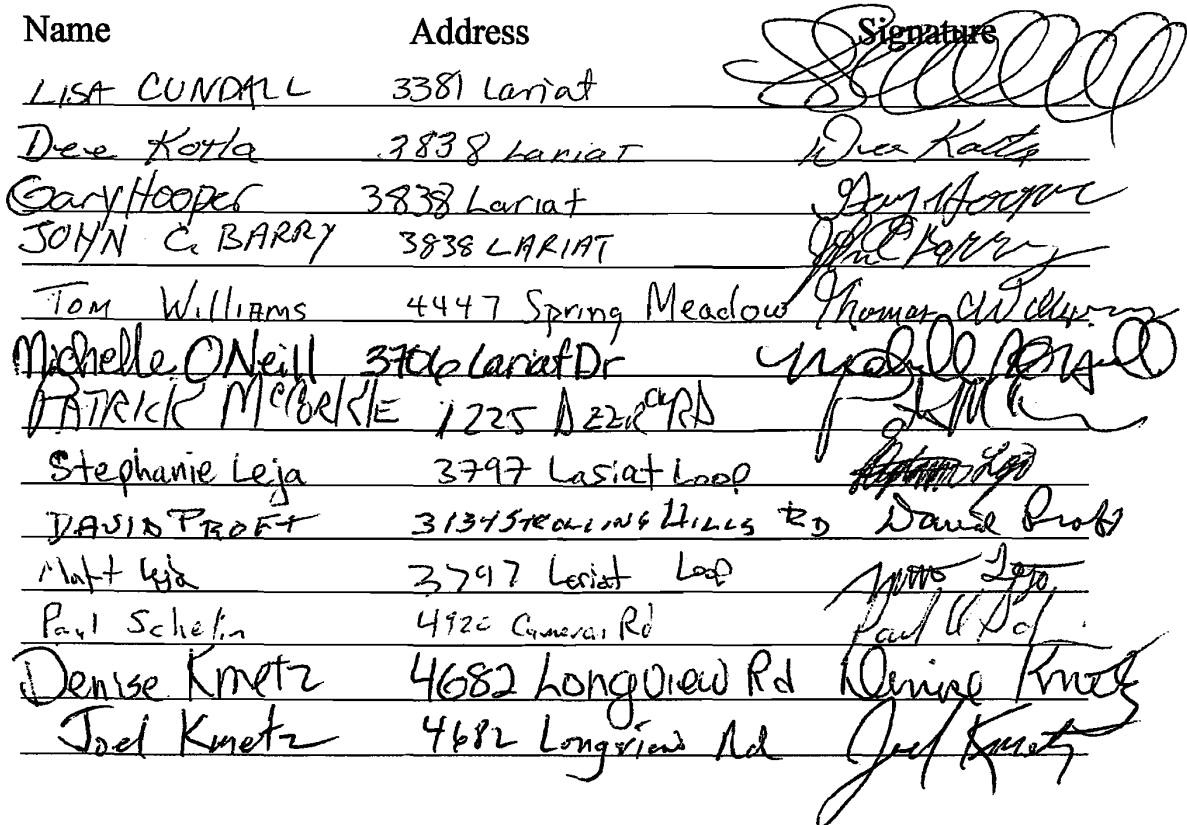 Name Address Signature
LISA CUNDALL 3381 Lariat
Dee Kotla 3838 Lariat Dee Kotla
Gary Hooper 3838 Lariat Gary Hooper
JOHN C. BARRY 3838 LARIAT John C Barry
Tom Williams 4447 Spring Meadow Thomas C Williams
Michelle ONeill 3706 Lariat Dr Michelle ONeill
PATRICK McCORKLE 1225 DEER CK RD
Stephanie Leja 3797 Lasiat Loop Leja
DAVID PROFT 3134 STROLLING HILLS RD David Proft
Matt Leja 3797 Lariat Loop Matt Leja
Paul Schelin 4920 Rd Paul
Denise Kmetz 4682 Longview Rd Denise Kmetz
Joel Kmetz 4682 Longview Rd Joel Kmetz